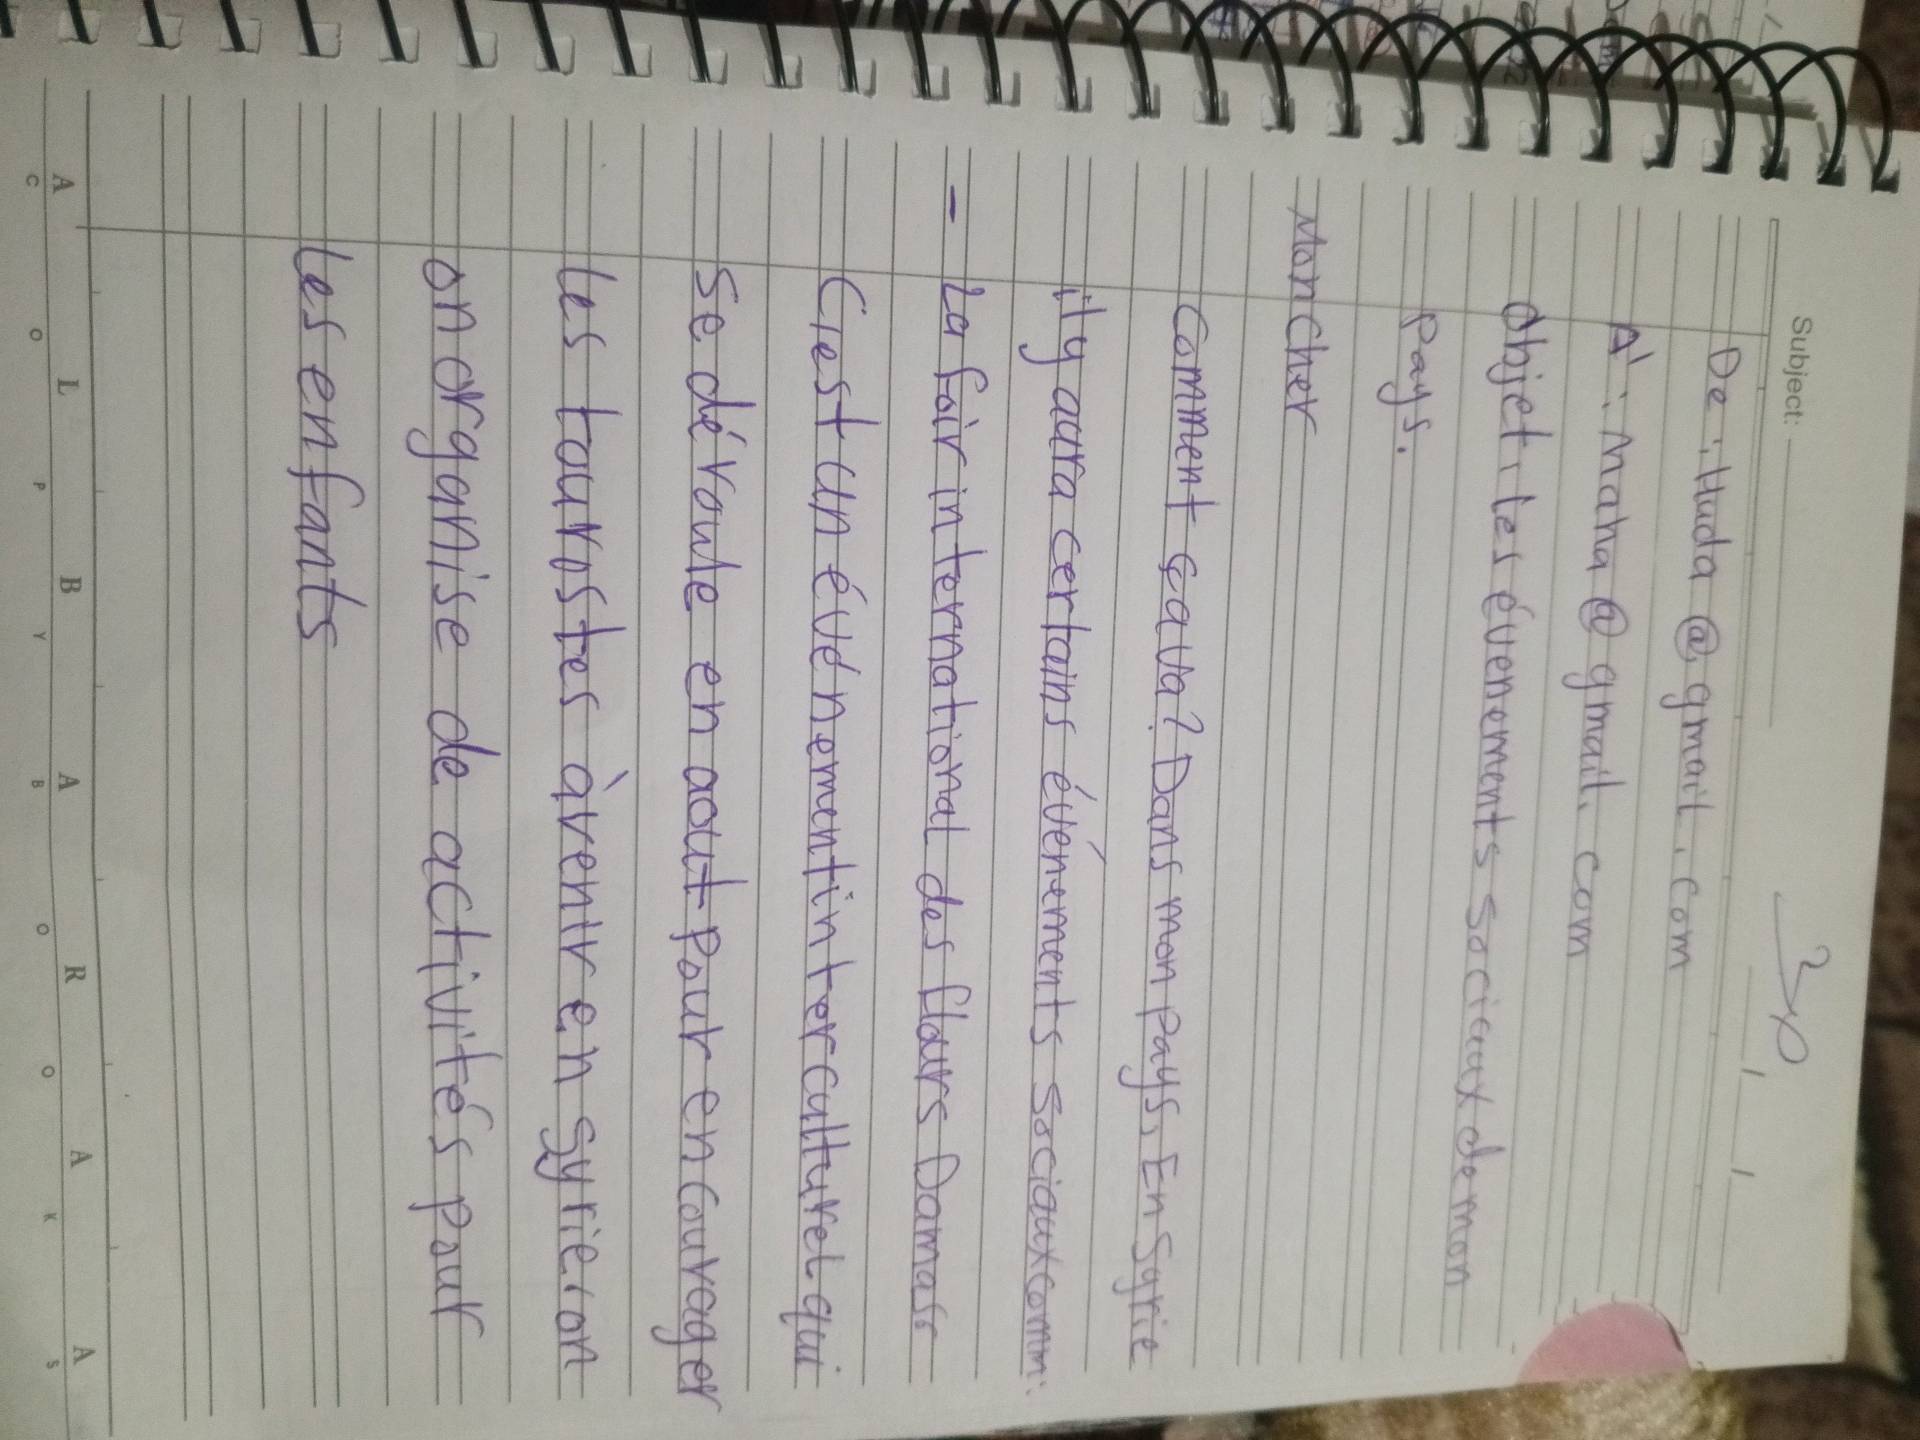 Subject:
De : Huda @ gmail. com
A' : Maha @ gmail. com
Objet : les événements sociaux de mon
Pays.
Mon Cher
Comment ça va? Dans mon pays, En Syrie
il y aura certains événements sociaux comm:
- La foir international des flours Damass
C'est un événement interculturel qui
Se dé'roule en aout Pour encourager
les touristes àvenir en Syrie, on
on organise de activités pour
les enfants
A L B A R A A
C O P Y B O O K S